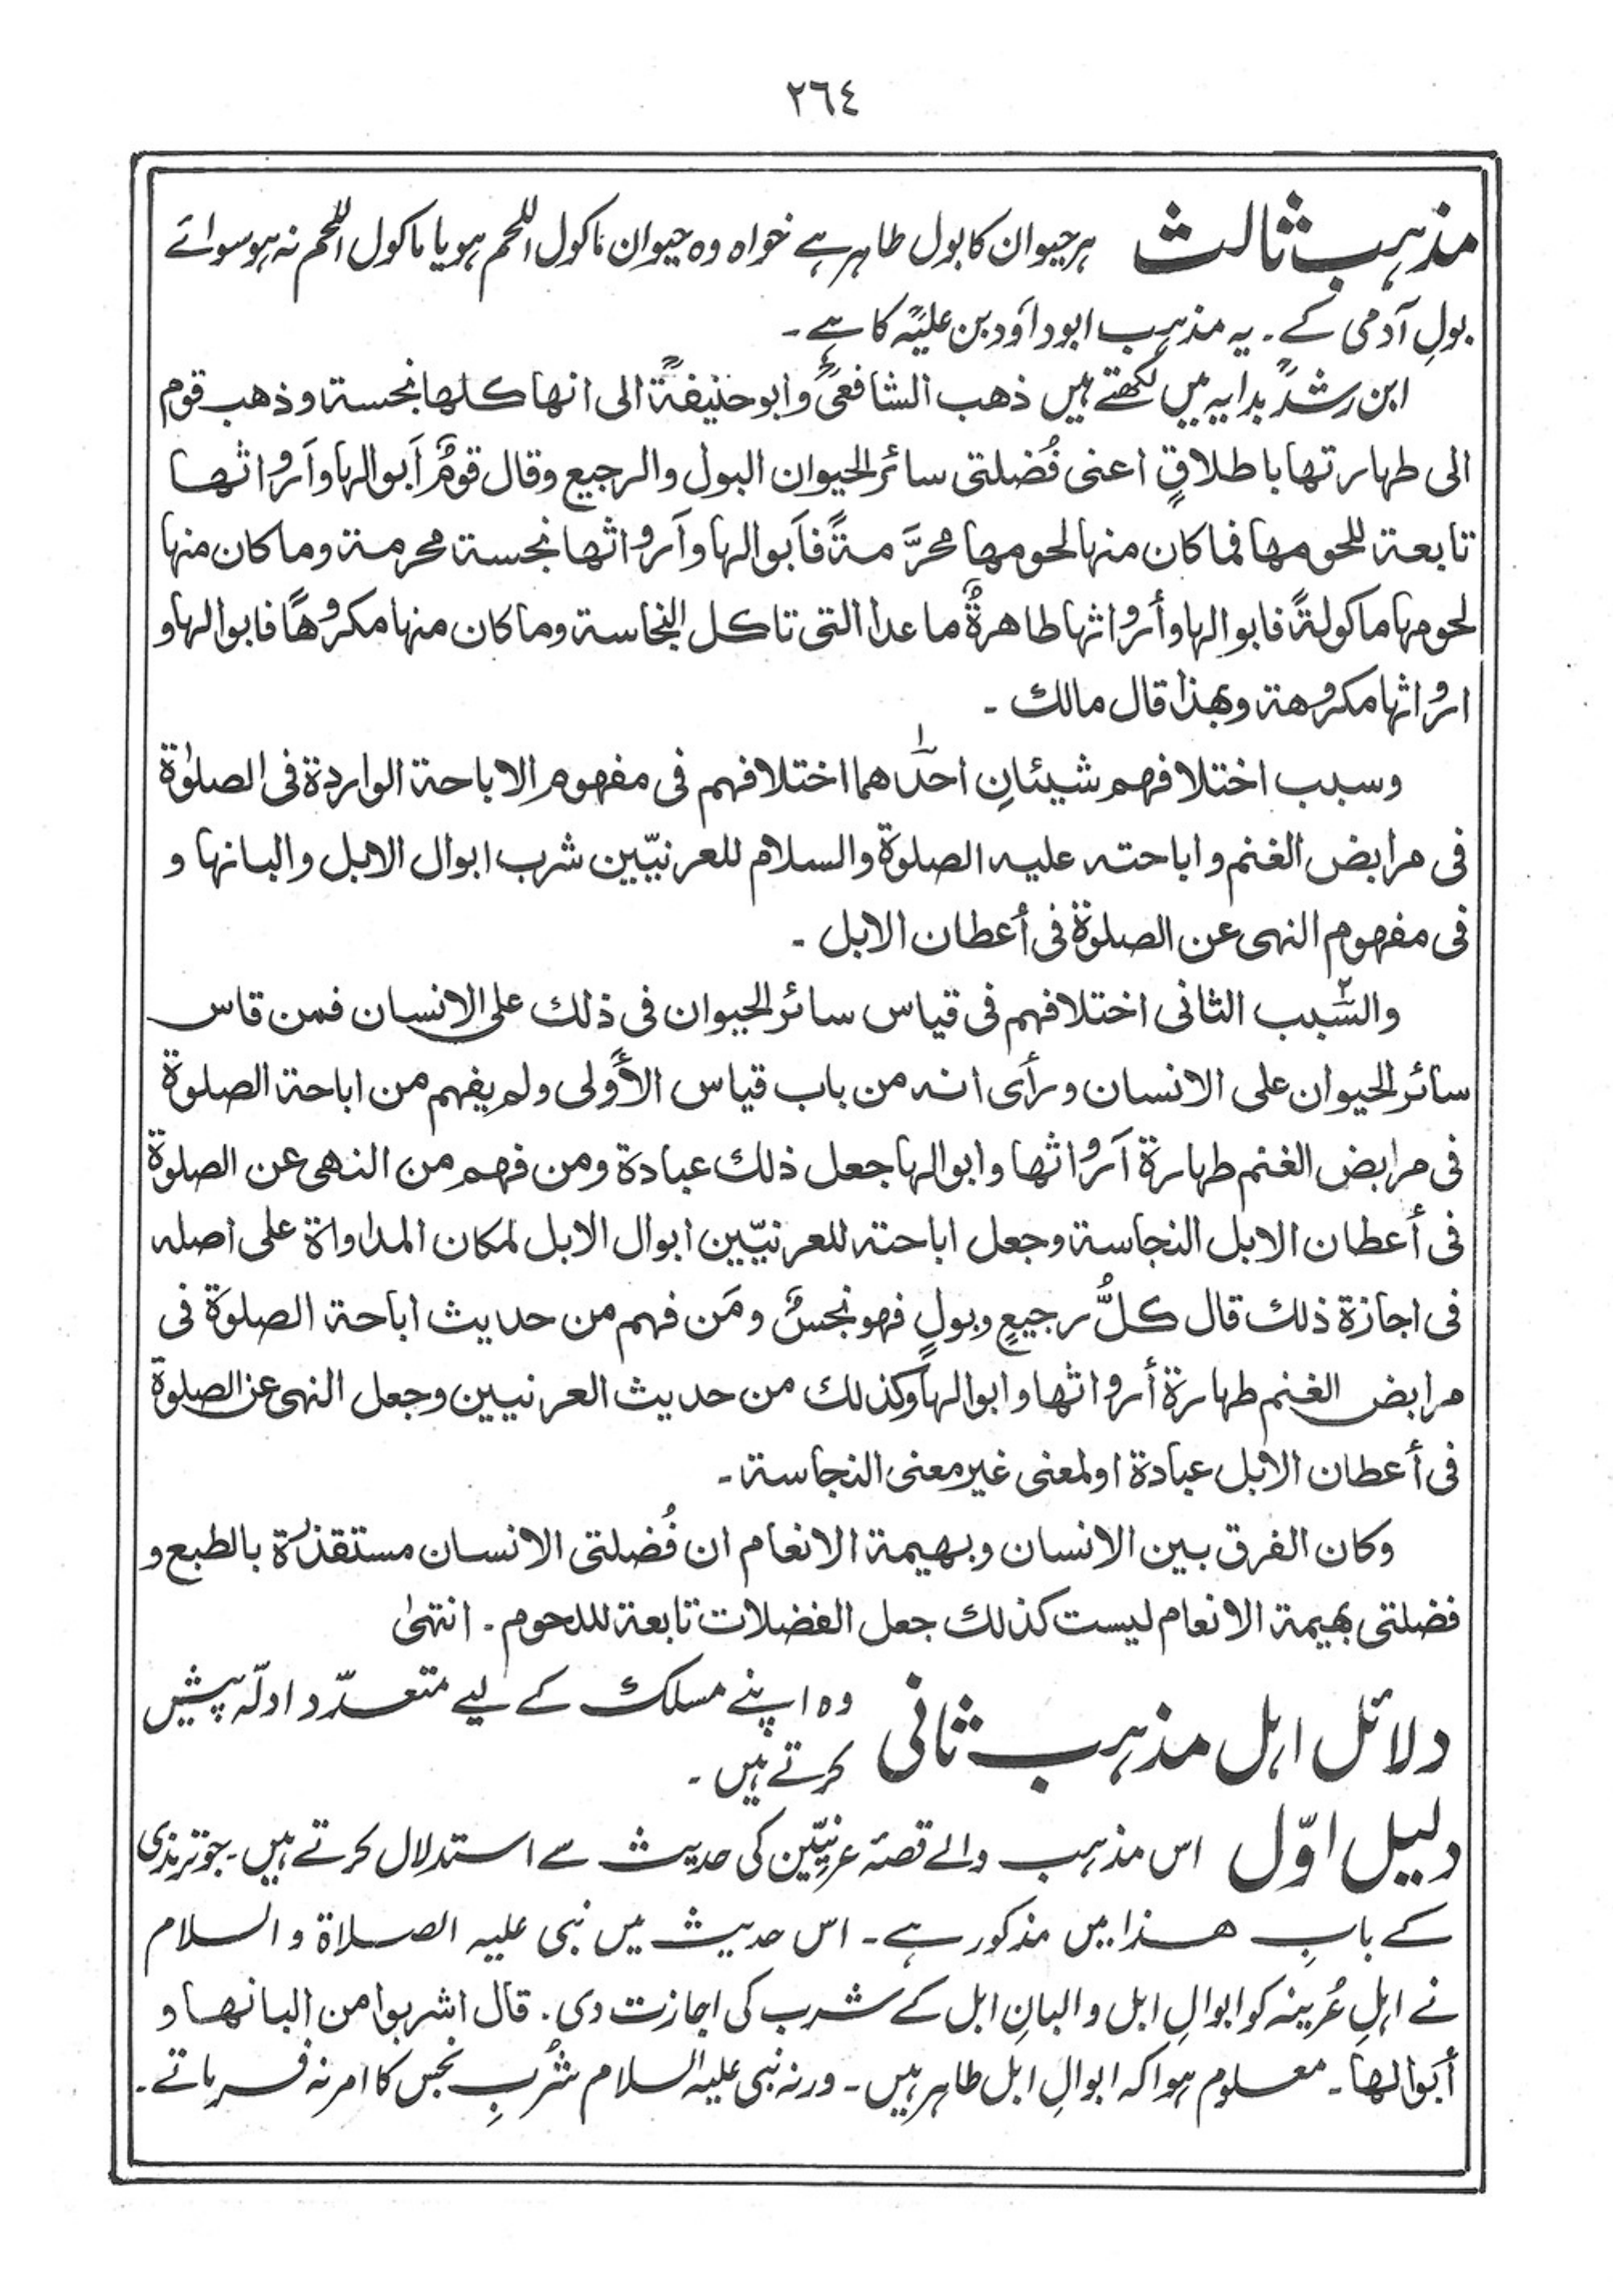 ٢٦٤
مذہب ثالث ہر حیوان کا بول طاہر ہے خواہ وہ حیوان ماکول اللحم ہو یا ماکول اللحم نہ ہو سوائے
بولِ آدمی کے۔ یہ مذہب ابوداؤد بن علیّہؒ کا ہے۔
ابن رشدؒ بدایہ میں لکھتے ہیں ذهب الشافعیؒ وابوحنیفةؒ الی انها کلها نجسة وذهب قوم
الی طهارتها باطلاقٍ اعنی فُضلتی سائر الحیوان البول والرجیع وقال قومٌ اَبوالها واَرواثها
تابعة للحومها فما کان منها لحومها محرَّمةً فاَبوالها واَرواثها نجسة محرمة وما کان منها
لحومها ماکولةً فابوالها وأرواثها طاهرةٌ ما عدا التی تاکل النجاسة وما کان منها مکروهًا فابوالها و
ارواثها مکروهة وبهذا قال مالك ۔
وسبب اختلافهم شیئانِ احدهما ١ اختلافهم فی مفهوم الاباحة الواردة فی الصلوٰة
فی مرابض الغنم واباحته علیه الصلوة والسلام للعرنیّین شرب ابوال الابل والبانها و
فی مفهوم النهی عن الصلوة فی أعطان الابل ۔
والسّبب ٢ الثانی اختلافهم فی قیاس سائر الحیوان فی ذلك علی الانسان فمن قاس
سائر الحیوان علی الانسان ورأی انه من باب قیاس الأَولی ولم یفهم من اباحة الصلوة
فی مرابض الغنم طهارة اَرواثها وابوالها جعل ذلك عبادة ومن فهم من النهی عن الصلوة
فی أعطان الابل النجاسة وجعل اباحته للعرنیّین ابوال الابل لمکان المداواة علی اصله
فی اجازة ذلك قال کلُّ رجیعٍ وبولٍ فهو نجسٌ ومَن فهم من حدیث اباحة الصلوة فی
مرابض الغنم طهارة أرواثها وابوالها وکذلك من حدیث العرنیین وجعل النهی عن الصلوة
فی أعطان الابل عبادة اولمعنی غیر معنی النجاسة ۔
وکان الفرق بین الانسان وبهیمة الانعام ان فُضلتی الانسان مستقذرة بالطبع و
فضلتی بهیمة الانعام لیست کذلك جعل الفضلات تابعة للحوم ۔ انتهیٰ
دلائل اہل مذہب ثانی وہ اپنے مسلک کے لیے متعدّد ادلّہ پیش
کرتے ہیں ۔
دلیل اوّل اس مذہب والے قصّۂ عرنیّین کی حدیث سے استدلال کرتے ہیں۔ جو ترمذی
کے بابِ ھذا میں مذکور ہے۔ اس حدیث میں نبی علیہ الصلاة و السلام
نے اہلِ عُرینہ کو ابوالِ ابل و البانِ ابل کے شرب کی اجازت دی۔ قال اشربوا من البانها و
أبوالها۔ معلوم ہوا کہ ابوالِ ابل طاہر ہیں۔ ورنہ نبی علیہ السلام شُربِ نجس کا امر نہ فرماتے۔